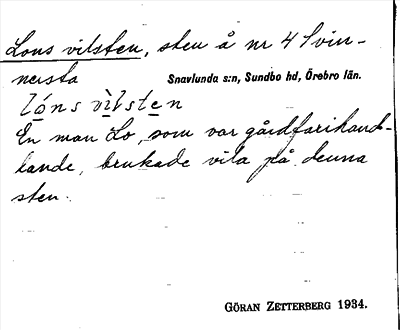 Lons vilsten, sten å nr 4 Svin-
nersta Snavlunda s:n, Sundbo hd, Örebro län.
lóns vìlsten
En man Lo, som var gårdfarihand-
lande, brukade vila på denna
sten.
GÖRAN ZETTERBERG 1934.